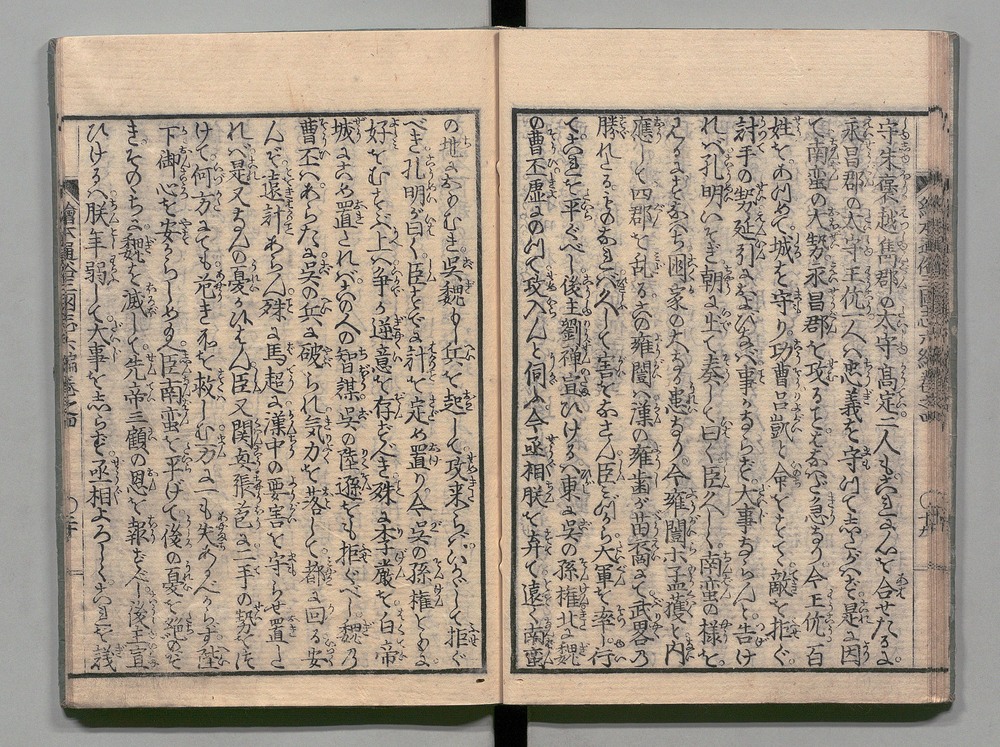 守朱褒越雋郡の太守高定二人もこれに心を合せたるよ
永昌郡の太守王伉一人ハ忠義を守つてしたがハず是に因
て南蛮の大勢永昌郡を攻ることはなハだ急なり今王伉百
姓をあつめて城を守り功曹呂凱と命をすてゝ敵を拒ぐ
討手の勢延引におよびなバ事なるらず大事ならんと告け
れバ孔明いそぎ朝に出て奏して曰く臣久しく南蛮の様を
見るにすなハち國家の大なる患なり今雍闓ホ孟獲と内
應して四郡を乱る この雍闓ハ漢の雍歯が苗裔にて武畧乃
勝れたるものなれバ久しくして害をなさん臣ミづから大軍を率し行
てこれを平ぐべし後主劉禅宣ひけるハ東に呉の孫権北に魏
の曹丕虚にのつて攻入んと伺ふ今丞相朕を弃て遠く南蛮
の地におもむき呉魏もし兵を起して攻来らバいかゞして拒ぐ
べき孔明が曰く臣すでに計を定め置り今呉の孫権ともよ
好をむすぶ上ハ争か逆意を存ずべき殊に李厳を白帝
城にこめ置されバこの人の智謀呉の陸遜をも拒ぐべし魏乃
曹丕ハあらたに呉の兵に破られ気力を落して都に回る安
んぞ遠計あらん殊に馬超に漢中の要害を守らせ置た
れバ是又なんの憂かひはん臣又関興張苞に二手の勢をつ
けて何方にても危きホを救しむ万に一も失あるべからず陛
下御心を安からしめ給へ臣南蛮を平げて後の憂を絶のぞ
きそのちに魏を滅して先帝三顧の恩を報ずべし後主宣
ひけるハ朕年弱して大事をしらず丞相よろしくこれを議
繪本通俗三國志六編巻之四